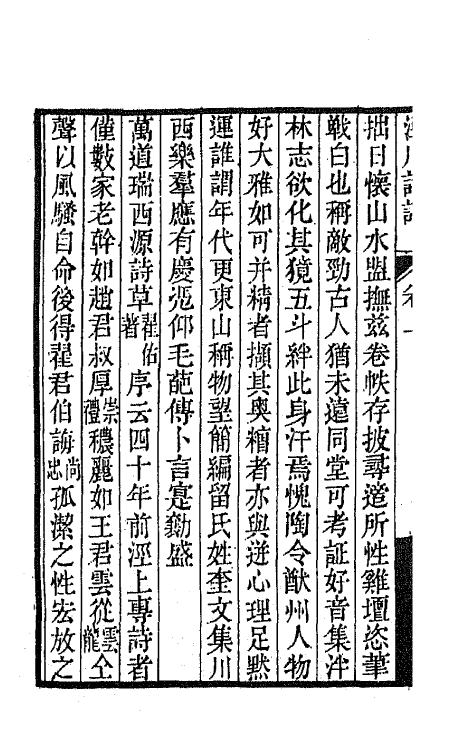 涇川詩話 卷一
拙日懷山水盟撫茲卷帙存披尋適所性雞壇恣筆
戰白也稱敵勁古人猶未遠同堂可考証好音集泮
林志欲化其獍五斗絆此身汗焉愧陶令猷州人物
好大雅如可并精者擷其奧糟者亦與迸心理足黙
運誰謂年代更東山稱物望簡編留氏姓奎文集川
西樂羣應有慶範仰毛葩傳卜言寔勷盛
萬道瑞西源詩草翟佑著序云四十年前涇上專詩者
僅數家老幹如趙君叔厚崇禮穠麗如王君雲從雲龍仝
聲以風騷自命後得翟君伯誨尚忠孤潔之性宏放之